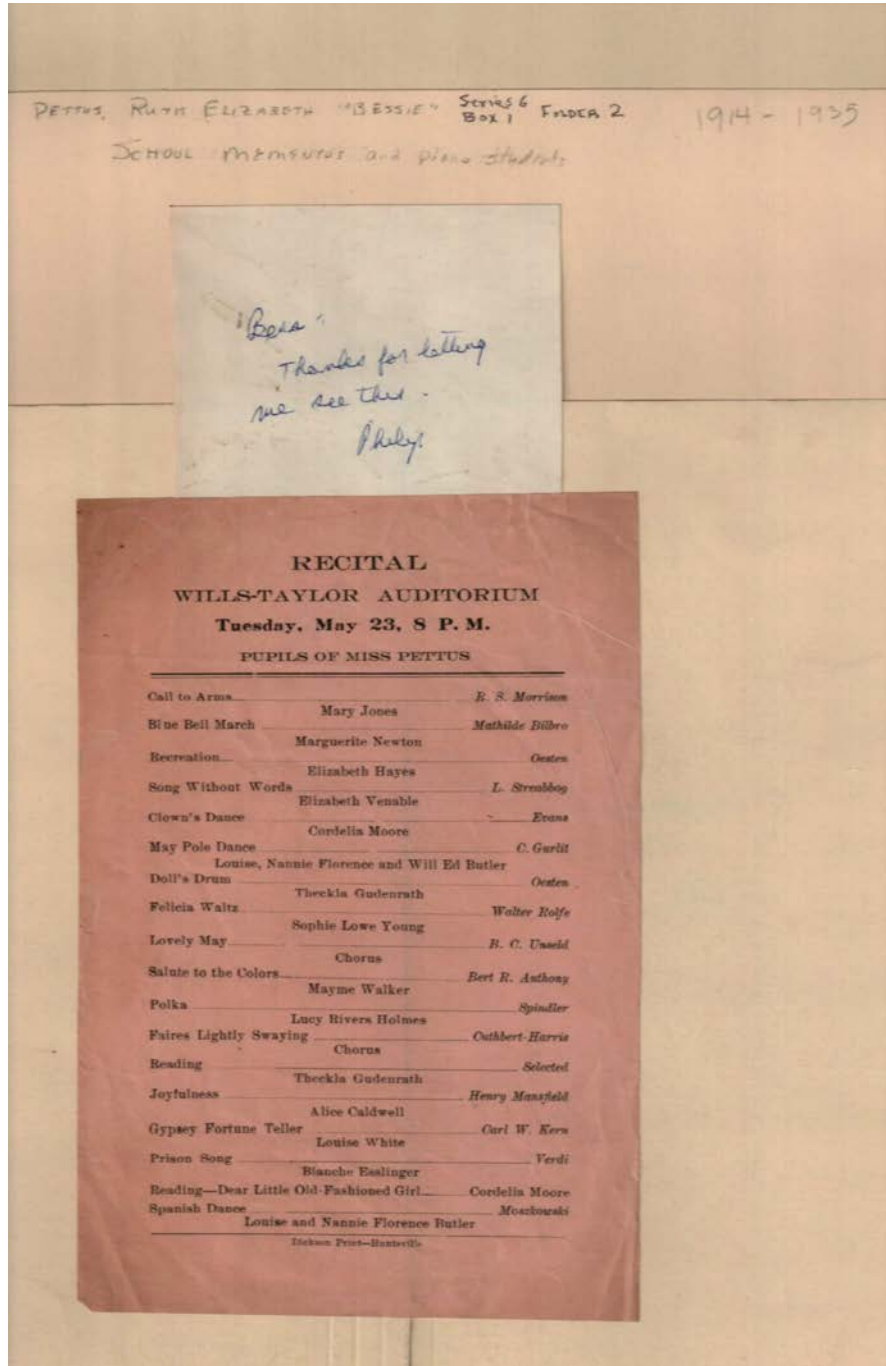 PETTUS, RUTH ELIZABETH "BESSIE" Series 6 Box 1 FOLDER 2 1914 - 1935
SCHOOL MEMENTOS and piano students
"Bess"
Thanks for letting
me see this.
RECITAL
WILLS-TAYLOR AUDITORIUM
Tuesday, May 23, 8 P. M.
PUPILS OF MISS PETTUS
Call to Arms R. S. Morrison
Mary Jones
Blue Bell March Mathilde Bilbro
Marguerite Newton
Recreation Oesten
Elizabeth Hayes
Song Without Words L. Streabbog
Elizabeth Venable
Clown's Dance Evans
Cordelia Moore
May Pole Dance C. Gurlit
Louise, Nannie Florence and Will Ed Butler
Doll's Drum Oesten
Theckla Gudenrath
Felicia Waltz Walter Rolfe
Sophie Lowe Young
Lovely May B. C. Unseld
Chorus
Salute to the Colors Bert R. Anthony
Mayme Walker
Polka Spindler
Lucy Rivers Holmes
Faires Lightly Swaying Cuthbert-Harris
Chorus
Reading Selected
Theckla Gudenrath
Joyfulness Henry Mansfield
Alice Caldwell
Gypsey Fortune Teller Carl W. Kern
Louise White
Prison Song Verdi
Blanche Esslinger
Reading—Dear Little Old-Fashioned Girl Cordelia Moore
Spanish Dance Moszkowski
Louise and Nannie Florence Butler
Dickson Print—Huntsville